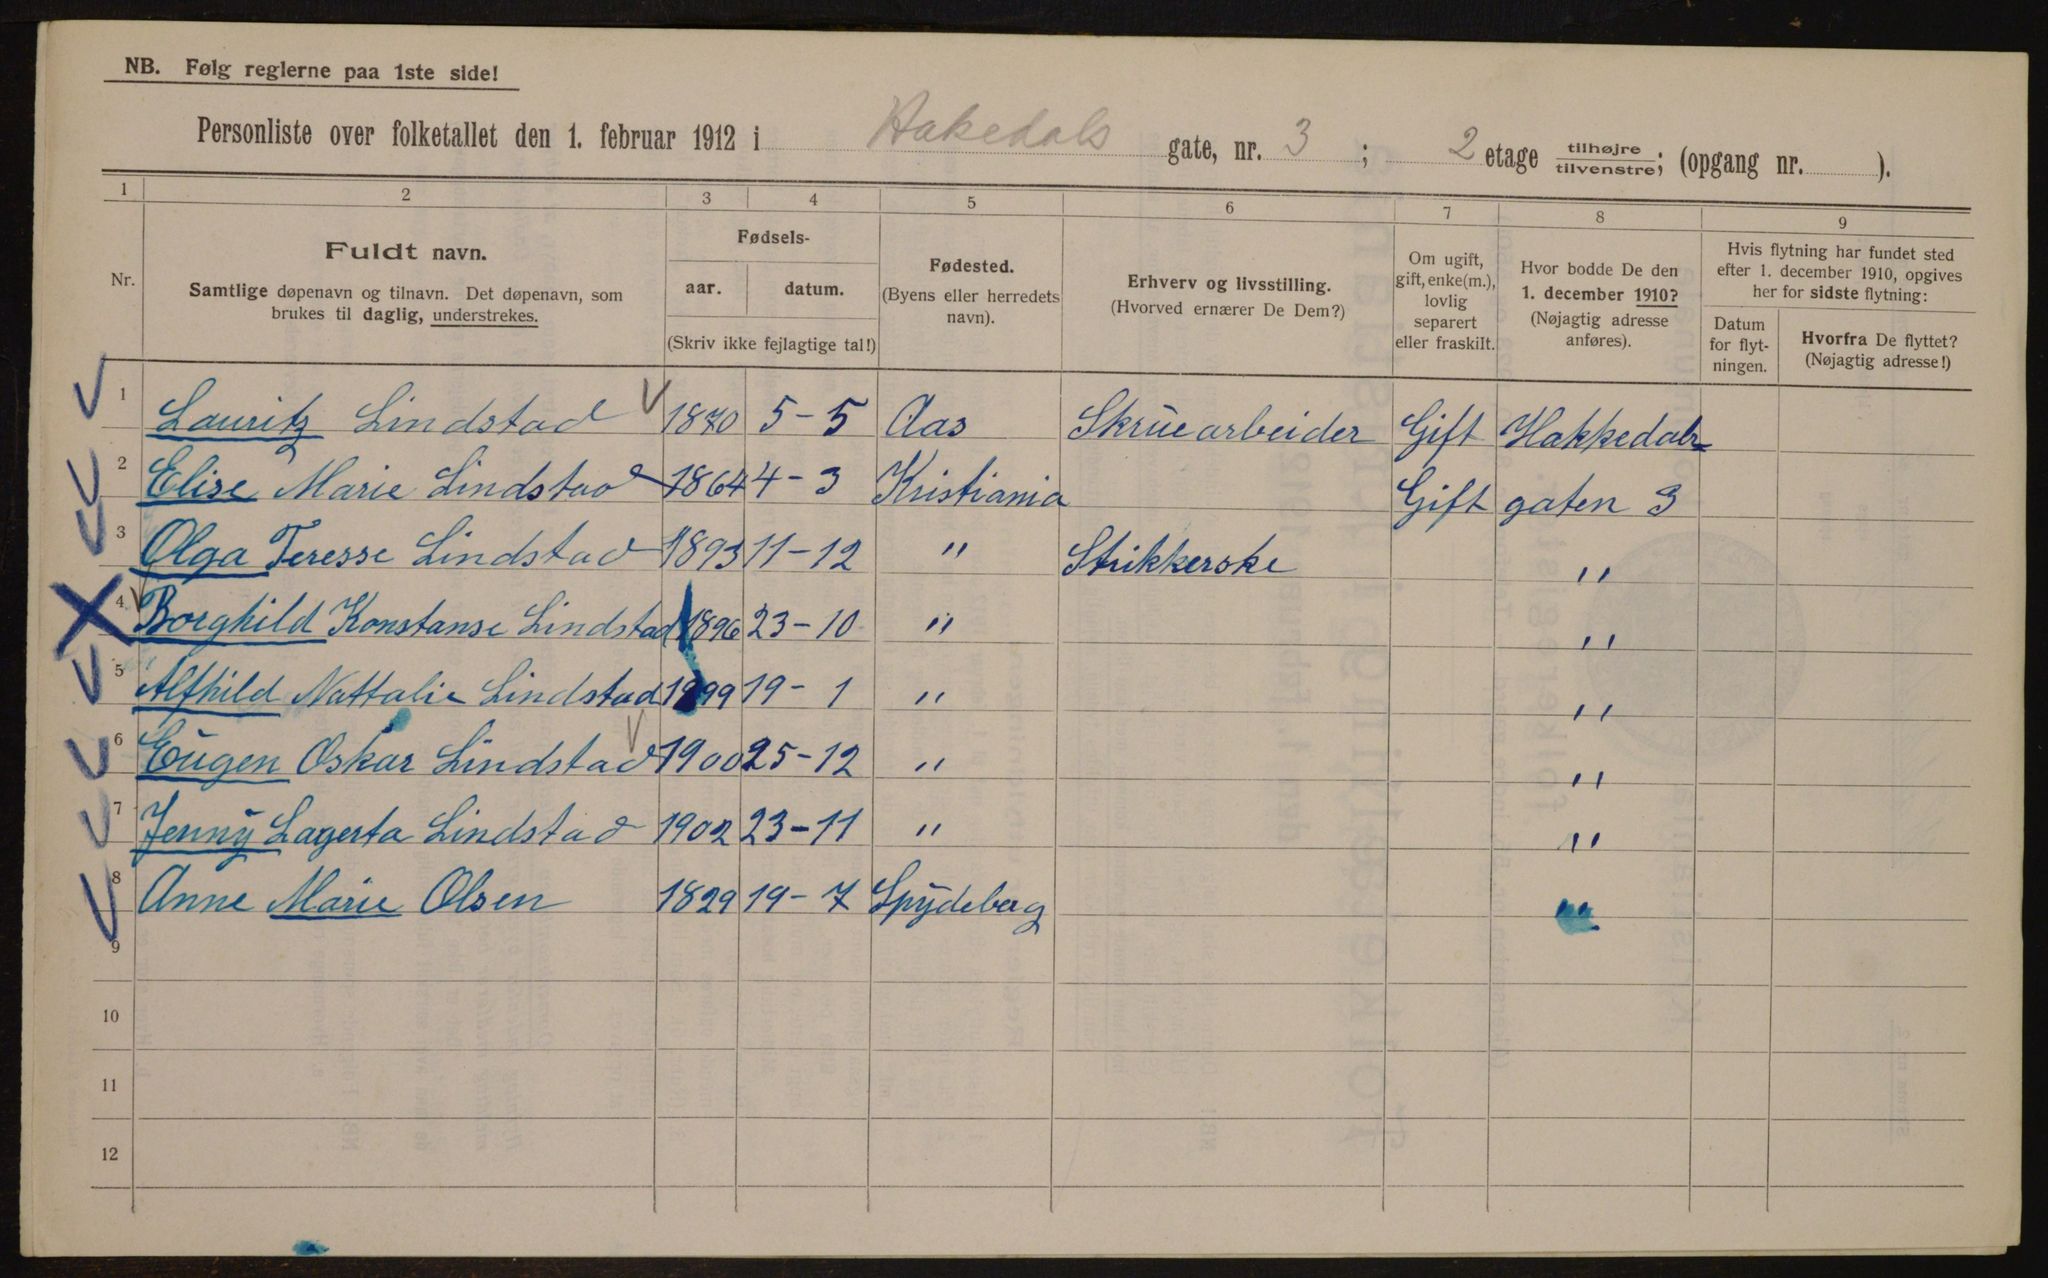 NB. Følg reglerne paa 1ste side!
Personliste over folketallet den 1. februar 1912 i Hakedals gate, nr. 3 ; 2 etage tilhøjre / tilvenstre; (opgang nr. ).
1 2 3 4 5 6 7 8 9
Nr.
Fuldt navn.
Samtlige døpenavn og tilnavn. Det døpenavn, som
brukes til daglig, understrekes.
Fødsels-
aar. datum.
(Skriv ikke fejlagtige tal!)
Fødested.
(Byens eller herredets
navn).
Erhverv og livsstilling.
(Hvorved ernærer De Dem?)
Om ugift,
gift, enke(m.),
lovlig
separert
eller fraskilt.
Hvor bodde De den
1. december 1910?
(Nøjagtig adresse
anføres).
Hvis flytning har fundet sted
efter 1. december 1910, opgives
her for sidste flytning:
Datum
for flyt-
ningen.
Hvorfra De flyttet?
(Nøjagtig adresse!)
1 Lauritz Lindstad 1870 5-5 Aas Skruearbeider Gift Hakkedals
2 Elise Marie Lindstad 1864 4-3 Kristiania Gift gaten 3
3 Olga Teresse Lindstad 1893 11-12 " Strikkerske "
4 Borghild Konstanse Lindstad 1896 23-10 " "
5 Alfhild Nattalie Lindstad 1899 19-1 " "
6 Eugen Oskar Lindstad 1900 25-12 " "
7 Jenny Lagerta Lindstad 1902 23-11 " "
8 Anne Marie Olsen 1829 19-7 Spydeberg "
9
10
11
12